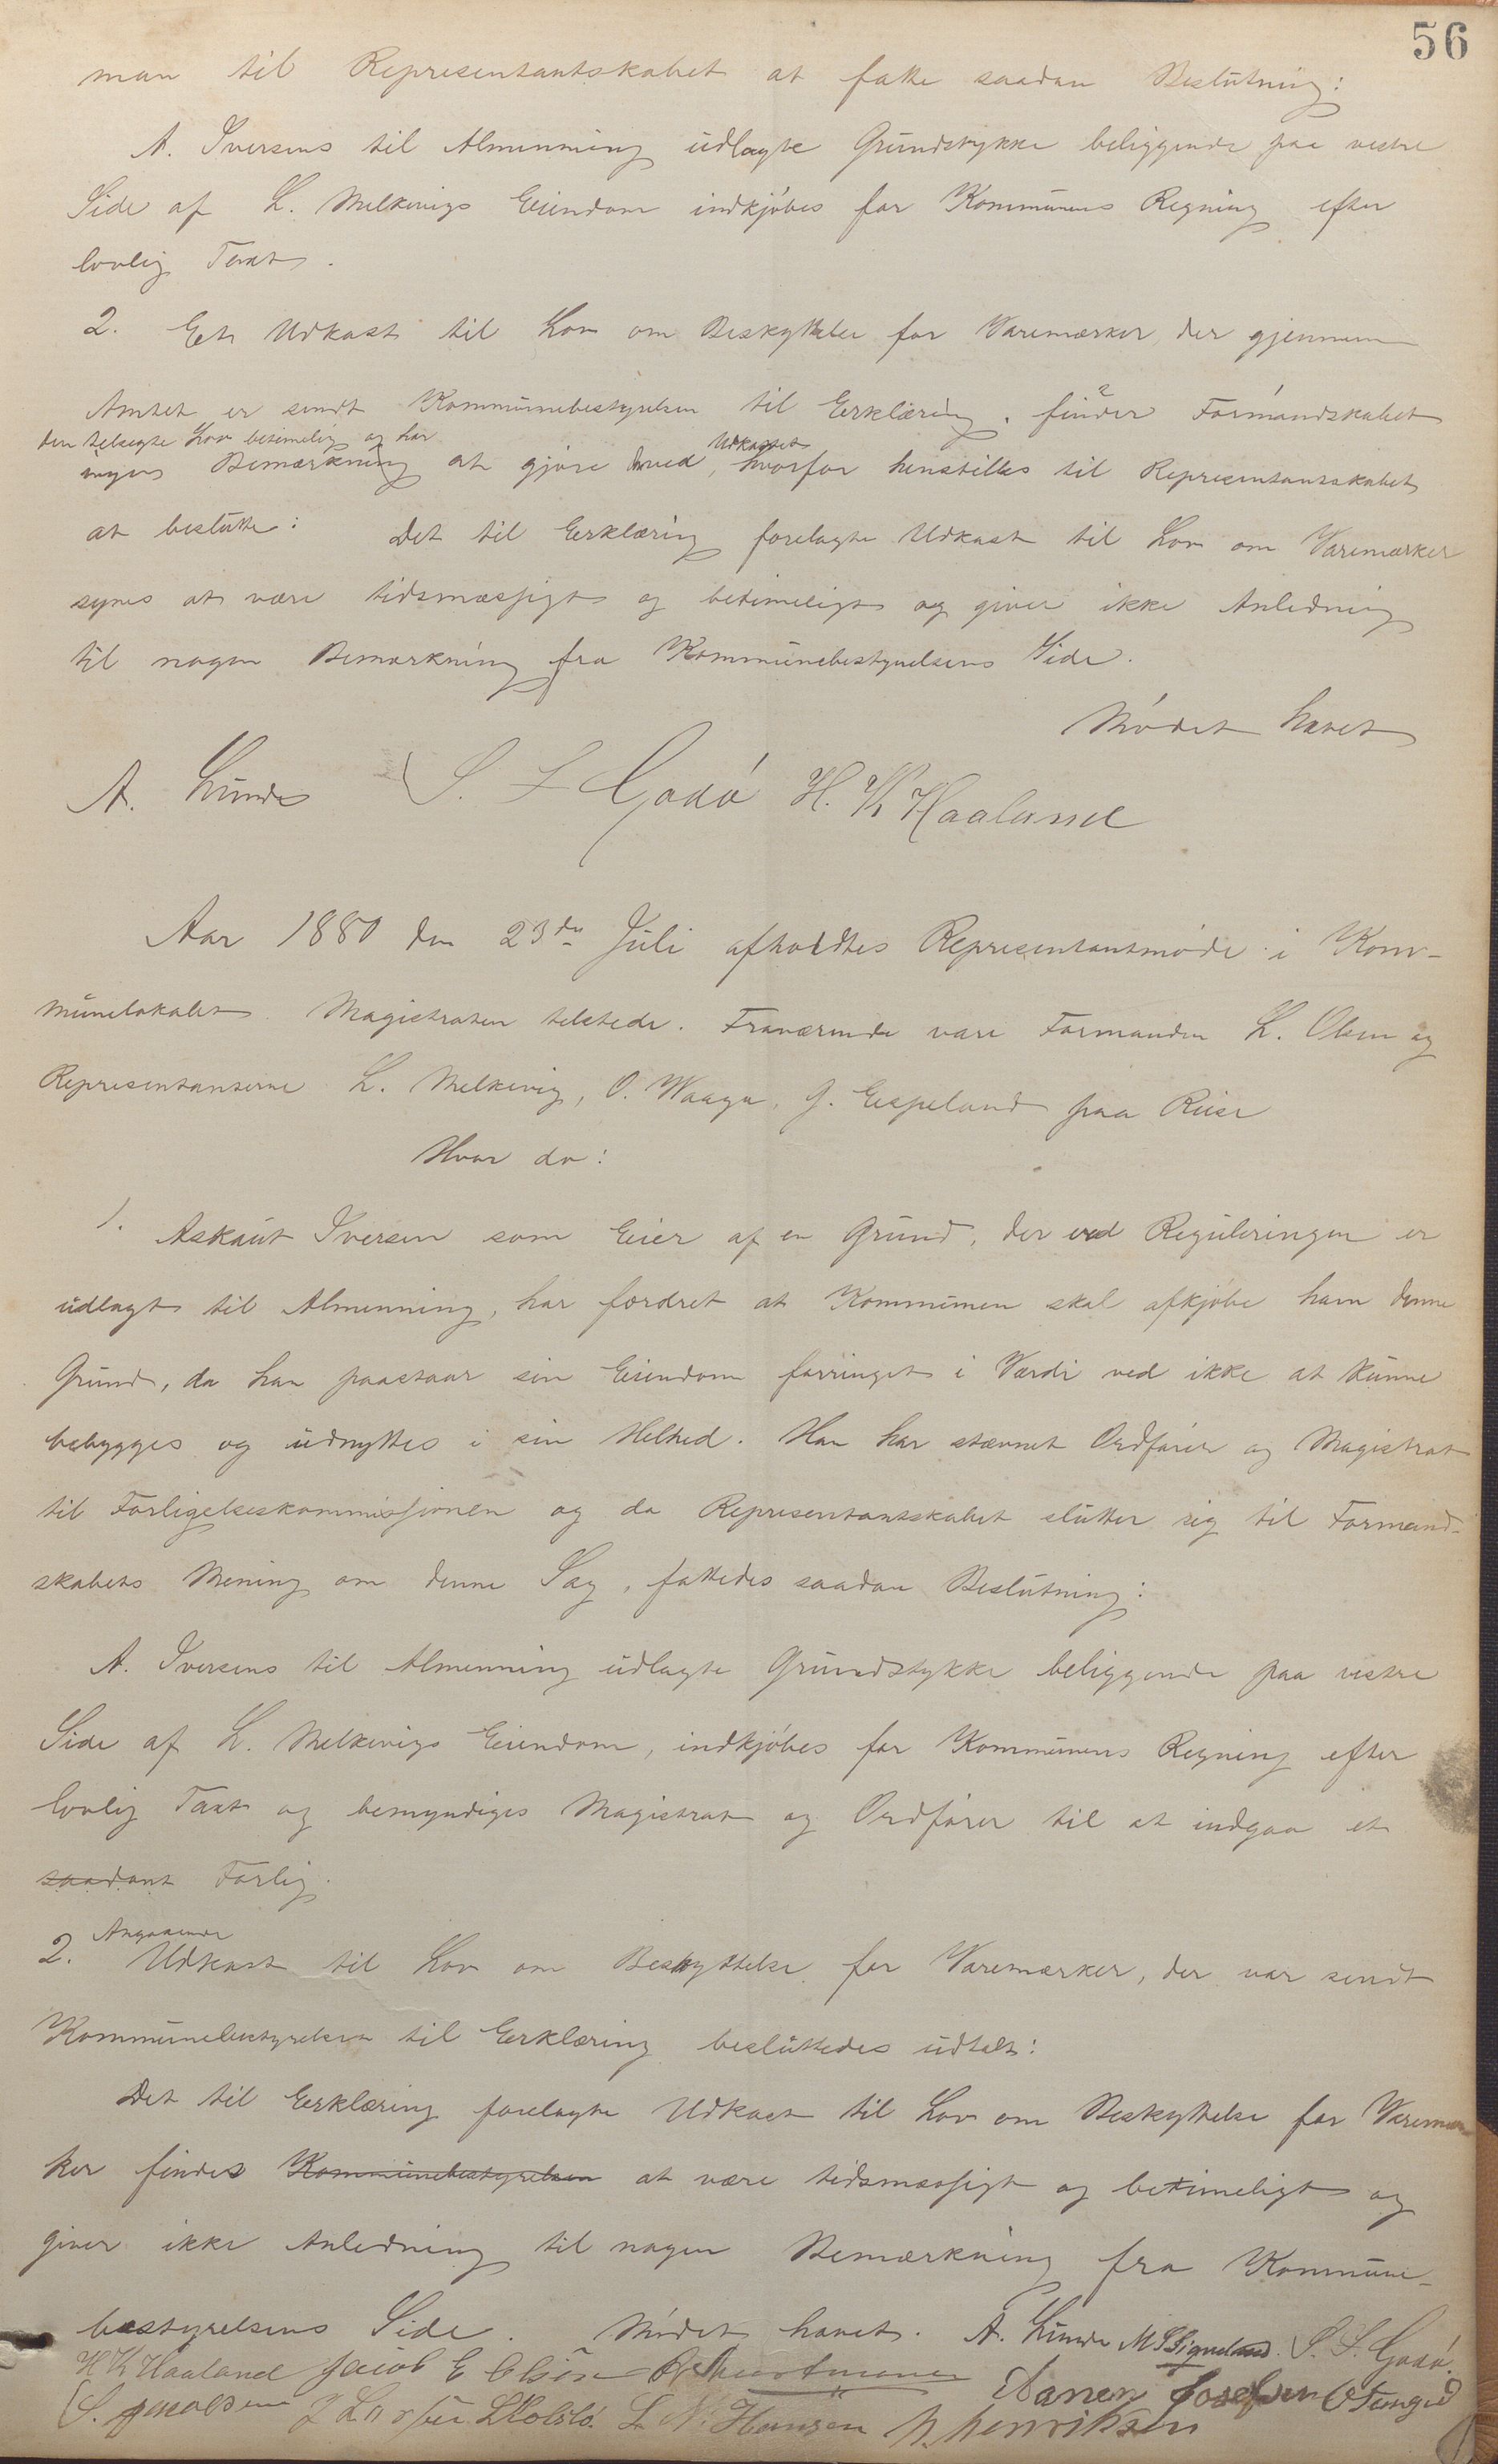 56
man til Representantskabet at fatte saadan Beslutning:
A. Iversens til Almenning udlagte Grundstykke beliggende paa vestre
Side af L. Melkevigs Eiendom indkjóbes for Kommunens Regning efter
lovlig Taxt.
2. Et Udkast til Lov om Beskyttelse for Varemærker, der gjennem
Amtet er sendt Kommunebestyrelsen til Erklæring, finder Formandskabet
den tilsigte Lov betimelig og har Udkastet
ingen Bemærkning at gjóre ved, hvorfor henstilles til Representantskabet
at beslutte: Det til Erklæring forelagte Udkast til Lov om Varemærker
synes at være tidsmæssigt og betimeligt og giver ikke Anledning
til nogen Bemærkning fra Kommunebestyrelsens Side.
Módet hævet
A. Lunde S. S Godó H. K Haaland
Aar 1880 den 23de Juli afholdtes Representantmóde i Kom-
munelokalet. Magistraten tilstede. Fraværende vare Formanden L. Olsen og
Representanterne L. Melkevig, O. Waage, J. Espeland paa Reise
Hvor da:
1. Askaut Iversen som Eier af en Grund, der ved Reguleringen er
udlagt til Almenning, har fordret at Kommunen skal afkjóbe ham denne
Grund, da han paastaar sin Eiendom forringet i Værdi ved ikke at kunne
bebygges og udnyttes i sin Helhed. Han har stævnet Ordfórer og Magistrat
til Forligelseskommissionen og da Representantskabet slutter sig til Formand-
skabets Mening om denne Sag, fattedes saadan Beslutning:
A. Iversens til Almenning udlagte Grundstykke beliggende paa vestre
Side af L. Melkevigs Eiendom, indkjóbes for Kommunens Regning efter
lovlig Taxt og bemyndiges Magistrat og Ordfórer til at indgaa et
saadant Forlig.
Angaaende
2. Udkast til Lov om Beskyttelse for Varemærker, der var sendt
Kommunebestyrelsen til Erklæring besluttedes udtalt:
Det til Erklæring forelagte Udkast til Lov om Beskyttelse for Varemær
ker findes Kommunebestyrelsen at være tidsmæssigt og betimeligt og
giver ikke Anledning til nogen Bemærkning fra Kommune-
bestyrelsens Side. Módet hævet. A. Lunde M S Signeland. S. S. Godó.
H K Haaland Jacob E Olsen Aanen Josefsen
S. Jacobsen J Larsen L Holstó. L. N. Hansen N. Henriksen